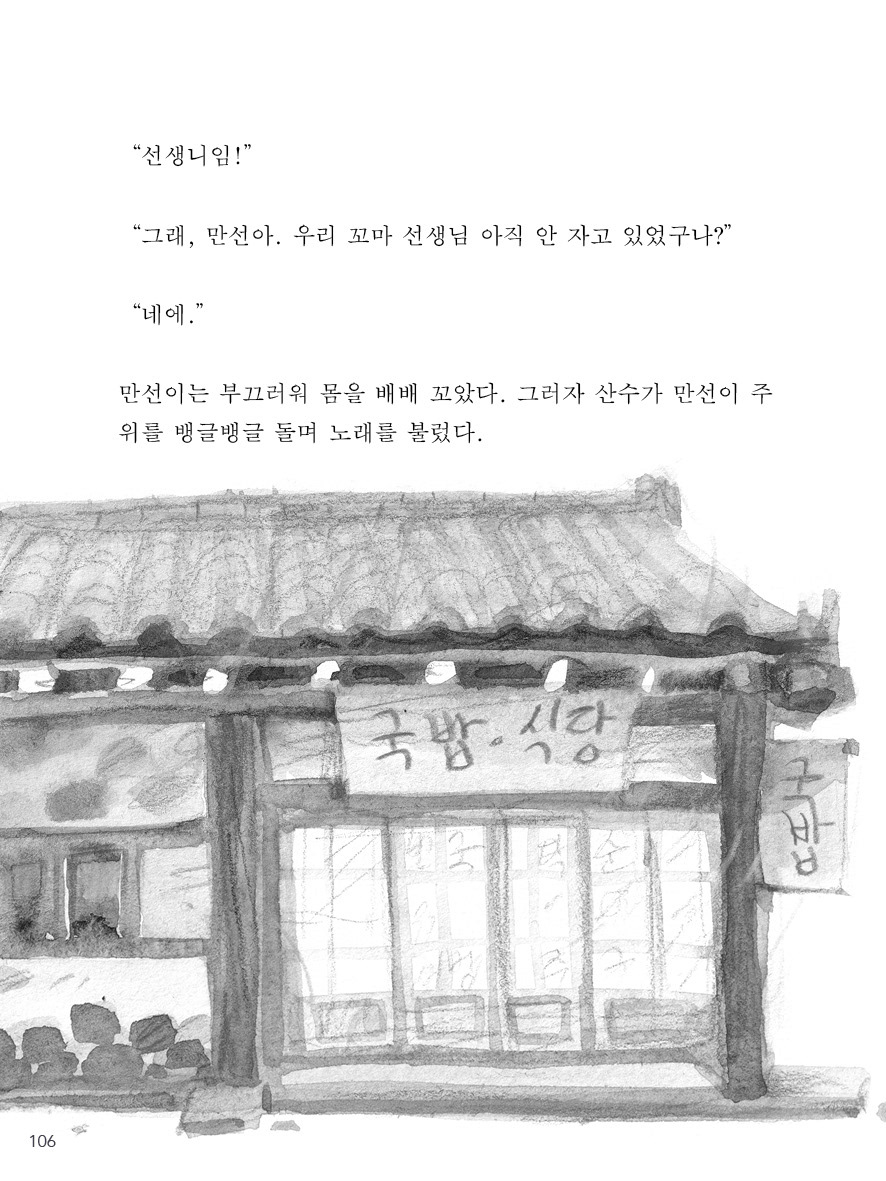 “선생니임!”
“그래, 만선아. 우리 꼬마 선생님 아직 안 자고 있었구나?”
“네에.”
만선이는 부끄러워 몸을 배배 꼬았다. 그러자 산수가 만선이 주
위를 뱅글뱅글 돌며 노래를 불렀다.
국밥·식당
국밥
106